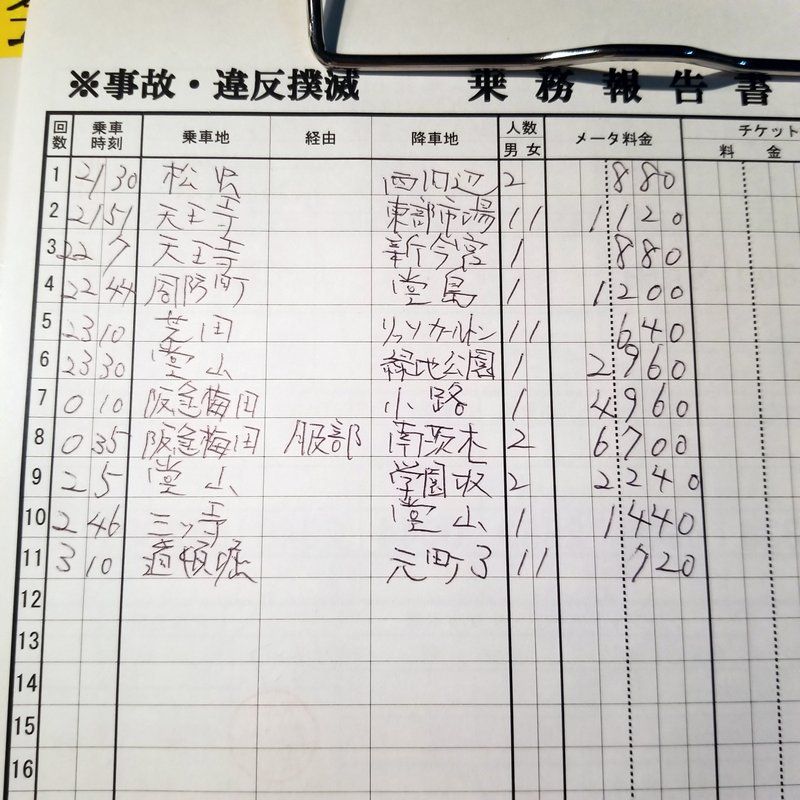 ※事故・違反撲滅 乗務報告書
回数 乗車時刻 乗車地 経由 降車地 人数 男 女 メータ料金 チケット 料金
1 21 30 松虫 西田辺 2 880
2 21 51 天王寺 東部市場 1 1 1120
3 22 7 天王寺 新今宮 1 880
4 22 44 周防町 堂島 1 1200
5 23 10 芝田 リッツカールトン 1 1 640
6 23 30 堂山 緑地公園 1 2960
7 0 10 阪急梅田 小路 1 4960
8 0 35 阪急梅田 服部 南茨木 2 6700
9 2 5 堂山 2 2240
10 2 46 三ッ寺 堂山 1 1440
11 3 10 道頓堀 元町3 1 1 720
12
13
14
15
16